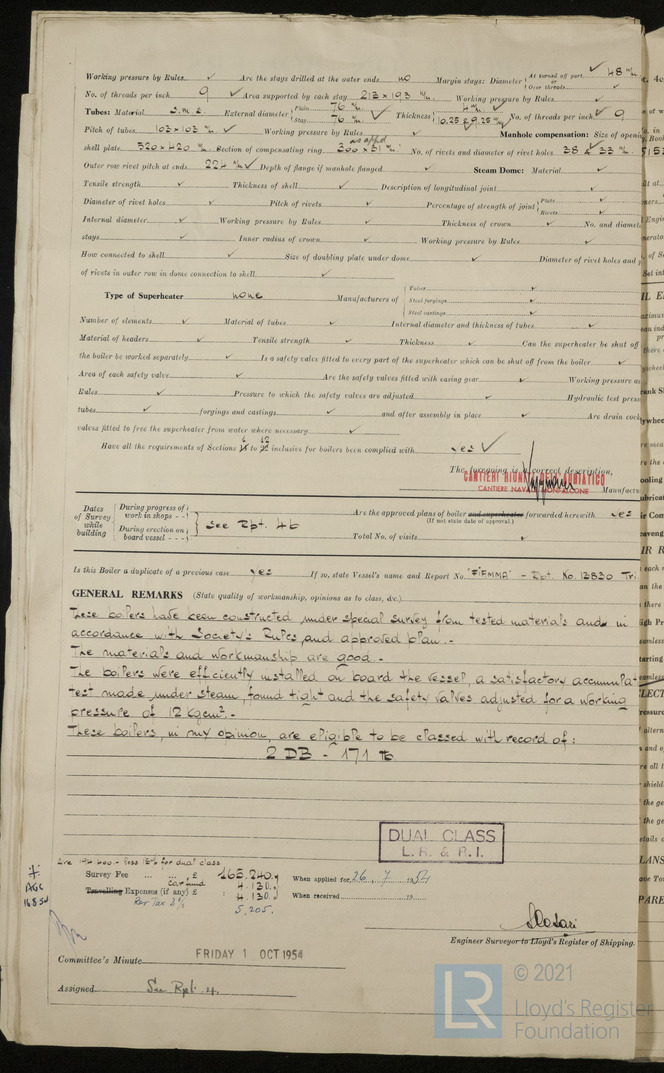 Working pressure by Rules ✓ Are the stays drilled at the outer ends no Margin stays: Diameter { At turned off part, or Over threads ✓ 48 m/m
No. of threads per inch 9 ✓ Area supported by each stay 213 x 193 m/m. Working pressure by Rules ✓
Tubes: Material S.M.S. External diameter { Plain 76 m/m Stay 76 m/m ✓ Thickness { 4 m/m ✓ 10.25 & 9.25 m/m No. of threads per inch ✓ 9
Pitch of tubes 103 x 103 m/m ✓ Working pressure by Rules ✓ Manhole compensation: Size of opening
shell plate 320 x 420 m/m Section of compensating ring 300 x 31 m/m as appd No. of rivets and diameter of rivet holes 38 & 33 m/m.
Outer row rivet pitch at ends 224 m/m ✓ Depth of flange if manhole flanged ✓ Steam Dome: Material ✓
Tensile strength ✓ Thickness of shell ✓ Description of longitudinal joint ✓
Diameter of rivet holes ✓ Pitch of rivets ✓ Percentage of strength of joint { Plate ✓ Rivets ✓
Internal diameter ✓ Working pressure by Rules ✓ Thickness of crown ✓ No. and diamet
stays ✓ Inner radius of crown ✓ Working pressure by Rules ✓
How connected to shell ✓ Size of doubling plate under dome ✓ Diameter of rivet holes and p
of rivets in outer row in dome connection to shell ✓
Type of Superheater none Manufacturers of { Tubes ✓ Steel forgings ✓ Steel castings ✓
Number of elements ✓ Material of tubes ✓ Internal diameter and thickness of tubes ✓
Material of headers ✓ Tensile strength ✓ Thickness ✓ Can the superheater be shut off
the boiler be worked separately ✓ Is a safety valve fitted to every part of the superheater which can be shut off from the boiler ✓
Area of each safety valve ✓ Are the safety valves fitted with easing gear ✓ Working pressure as
Rules ✓ Pressure to which the safety valves are adjusted ✓ Hydraulic test press
tubes ✓ forgings and castings ✓ and after assembly in place ✓ Are drain cock
valves fitted to free the superheater from water where necessary ✓
Have all the requirements of Sections to inclusive for boilers been complied with yes ✓
The foregoing is a correct description,
CANTIERI RIUNITI DELL'ADRIATICO
CANTIERE NAVALE MONFALCONE Manufactu
Dates of Survey while building { During progress of work in shops - - During erection on board vessel - - - } See Rpt. 4b
Are the approved plans of boiler and superheater forwarded herewith yes
(If not state date of approval.)
Total No. of visits ✓
Is this Boiler a duplicate of a previous case yes If so, state Vessel's name and Report No. "FIEMMA" - Rpt. No. 12830 Tri.
GENERAL REMARKS (State quality of workmanship, opinions as to class, &c.)
These boilers have been constructed under special survey from tested materials and in
accordance with Society's Rules and approved plan.-
The materials and workmanship are good.-
The boilers were efficiently installed on board the vessel, a satisfactory accumulat
test made under steam, found tight and the safety valves adjusted for a working
pressure of 12 Kgcm².-
These boilers, in my opinion, are eligible to be classed with record of:
2 DB - 171 lb
DUAL CLASS
L.R. & R.I.
less 15% for dual class
Survey Fee ... ... £ 165.240. When applied for 26.7.1954
car fund 4.130.
Travelling Expenses (if any) £ 4.130. When received 19
Rev Tax 3% 5.205.
Engineer Surveyor to Lloyd's Register of Shipping.
Committee's Minute FRIDAY 1 OCT 1954
Assigned See Rpt. 4.
© 2021
LR Lloyd's Register
Foundation